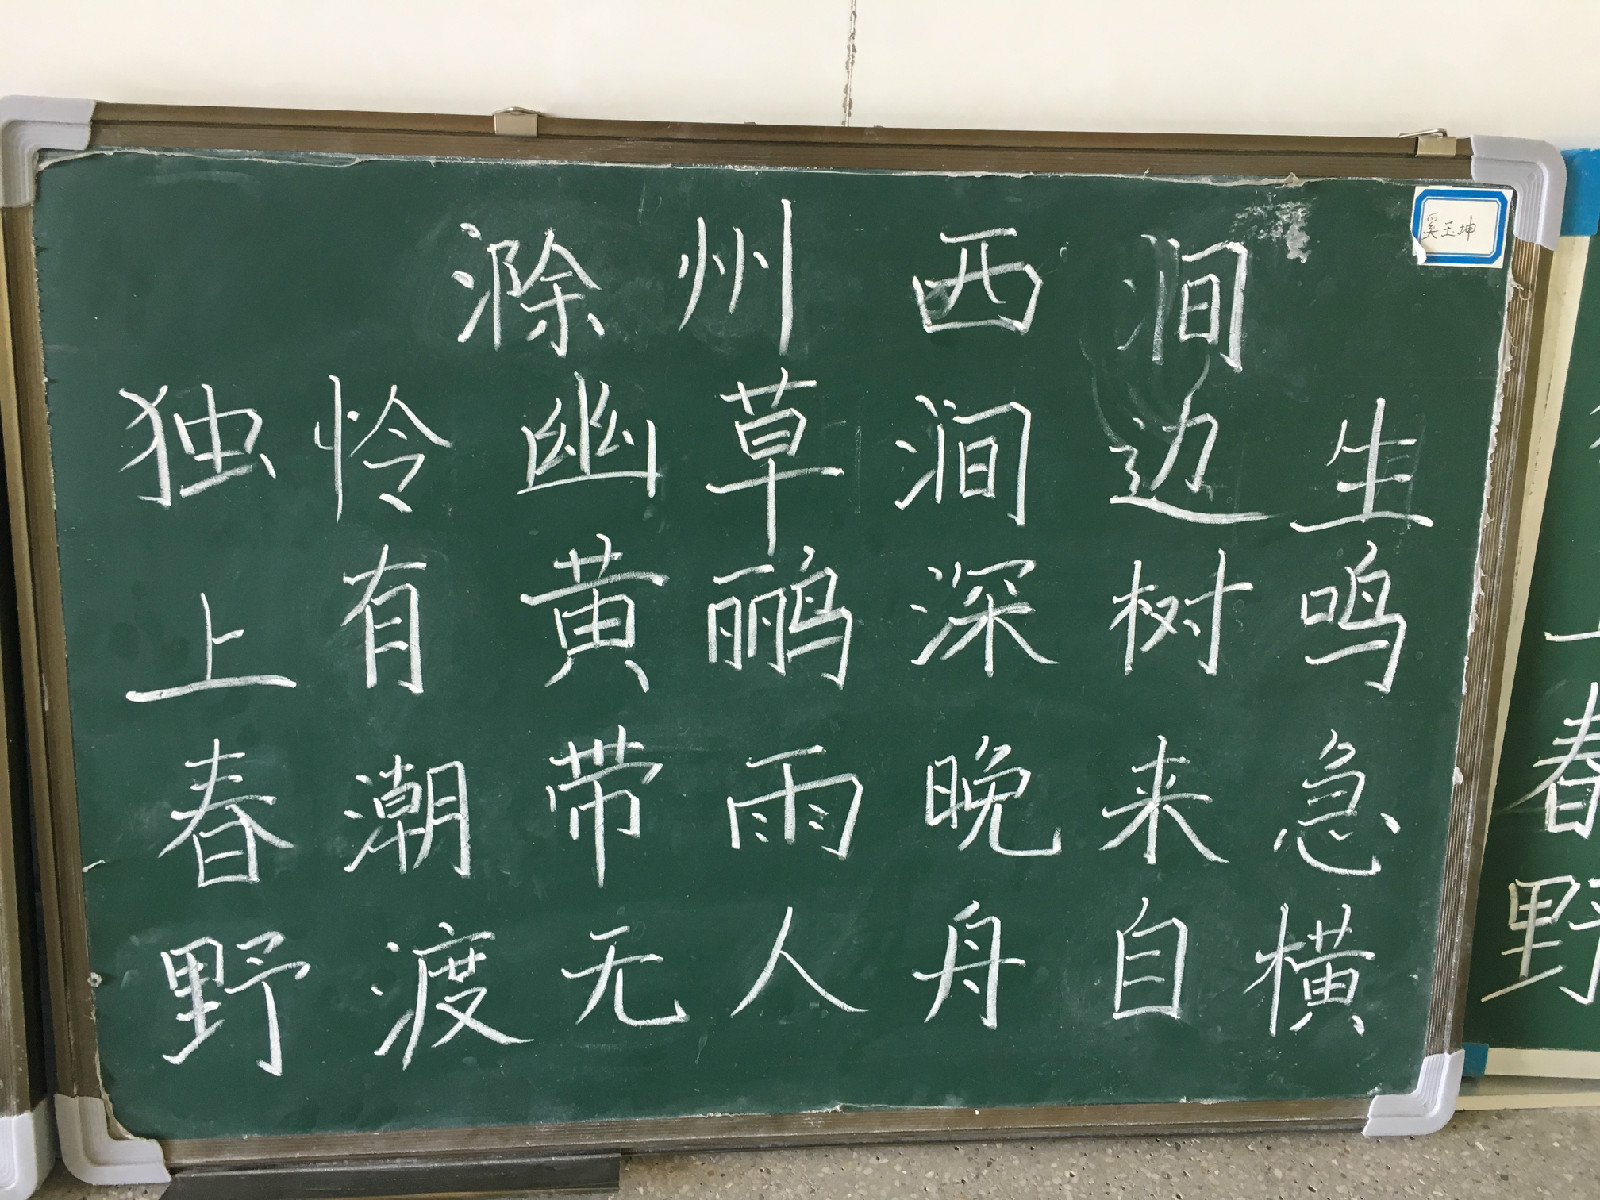 滁州西涧
奚玉坤
独怜幽草涧边生
上有黄鹂深树鸣
春潮带雨晚来急
野渡无人舟自横
春
野